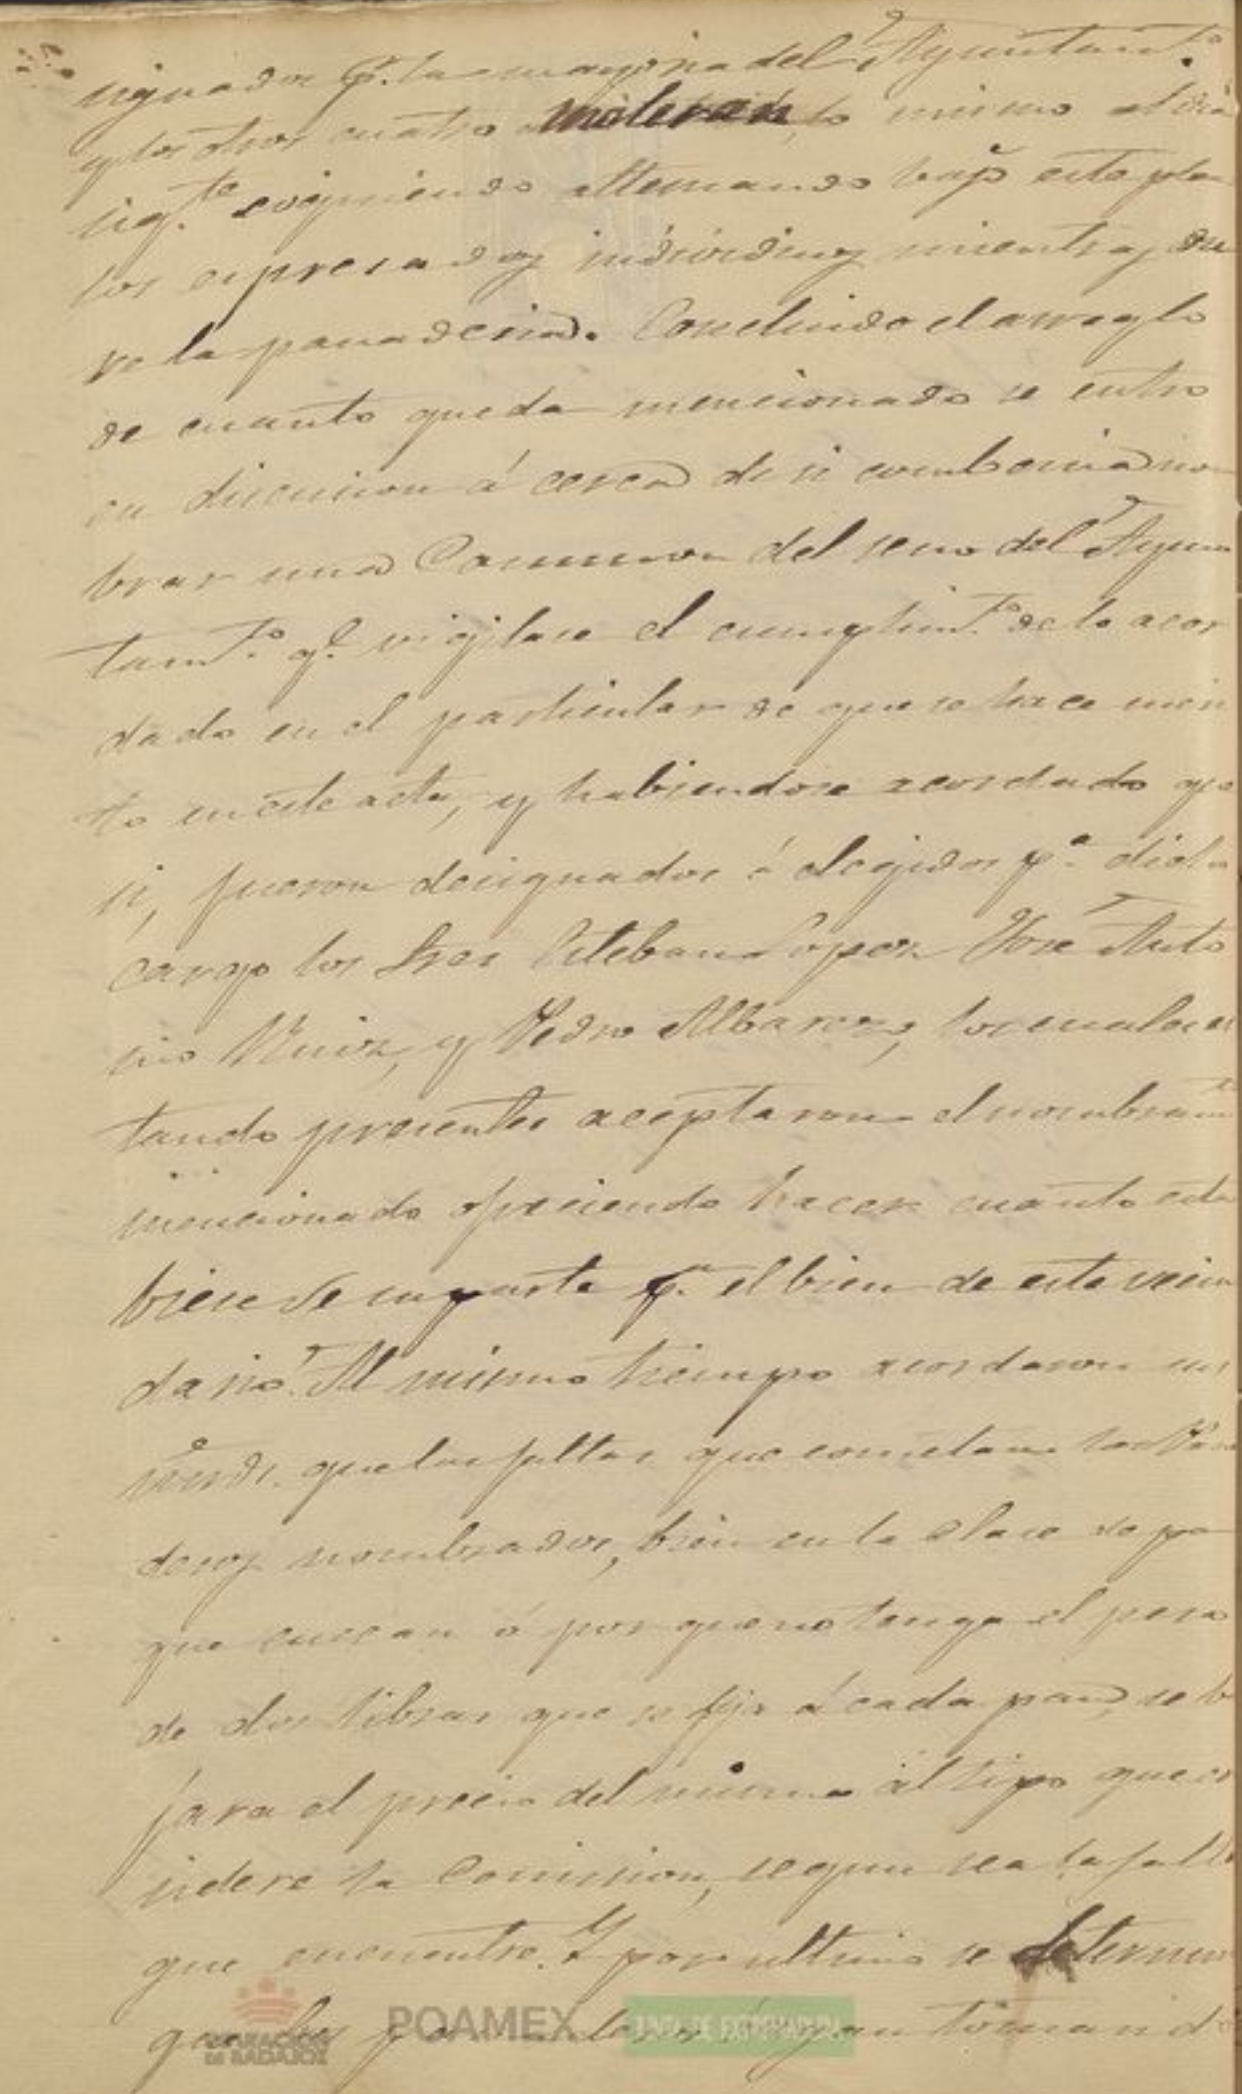 signados p.r la mayoria del Ayuntam.to
y los otros cuatro moleran lo mismo el dia
sig.te siguiendo alternando bajo este plan
los espresados individuos mientras du
re la panaderia. Concluido el arreglo
de cuanto queda mencionado se entro
en discusion á cerca de si combenia nom
brar una Comision del seno del Ayun
tam.to q.e vigilase el cumplim.to de lo acor
dado en el particular de que se hace men
to en este acta, y habiendose acordado que
si, fueron designados ó elegidos p.a dicho
cargo los Sres Esteban Lopez José Anto
nio Muñoz, y Pedro Albarez, los cuales es
tando presentes aceptaron el nombram.to
mencionado ofreciendo hacer cuanto estu
biese de su parte p.a el bien de este vecin
dario. Al mismo tiempo acordaron sus
que las faltas que cometan los Pana
deros nombrados, bien en la clase de pan
que cuezan ó por que no tenga el peso
de dos libras que se fija á cada pan, se ba
jara el precio del mismo al tipo que con
sidere la Comision, segun sea la falta
que encuentre. Y por ultimo se determino
que los vayan tomando
POAMEX
JUNTA DE EXTREMADURA
DIPUTACIÓN
DE BADAJOZ